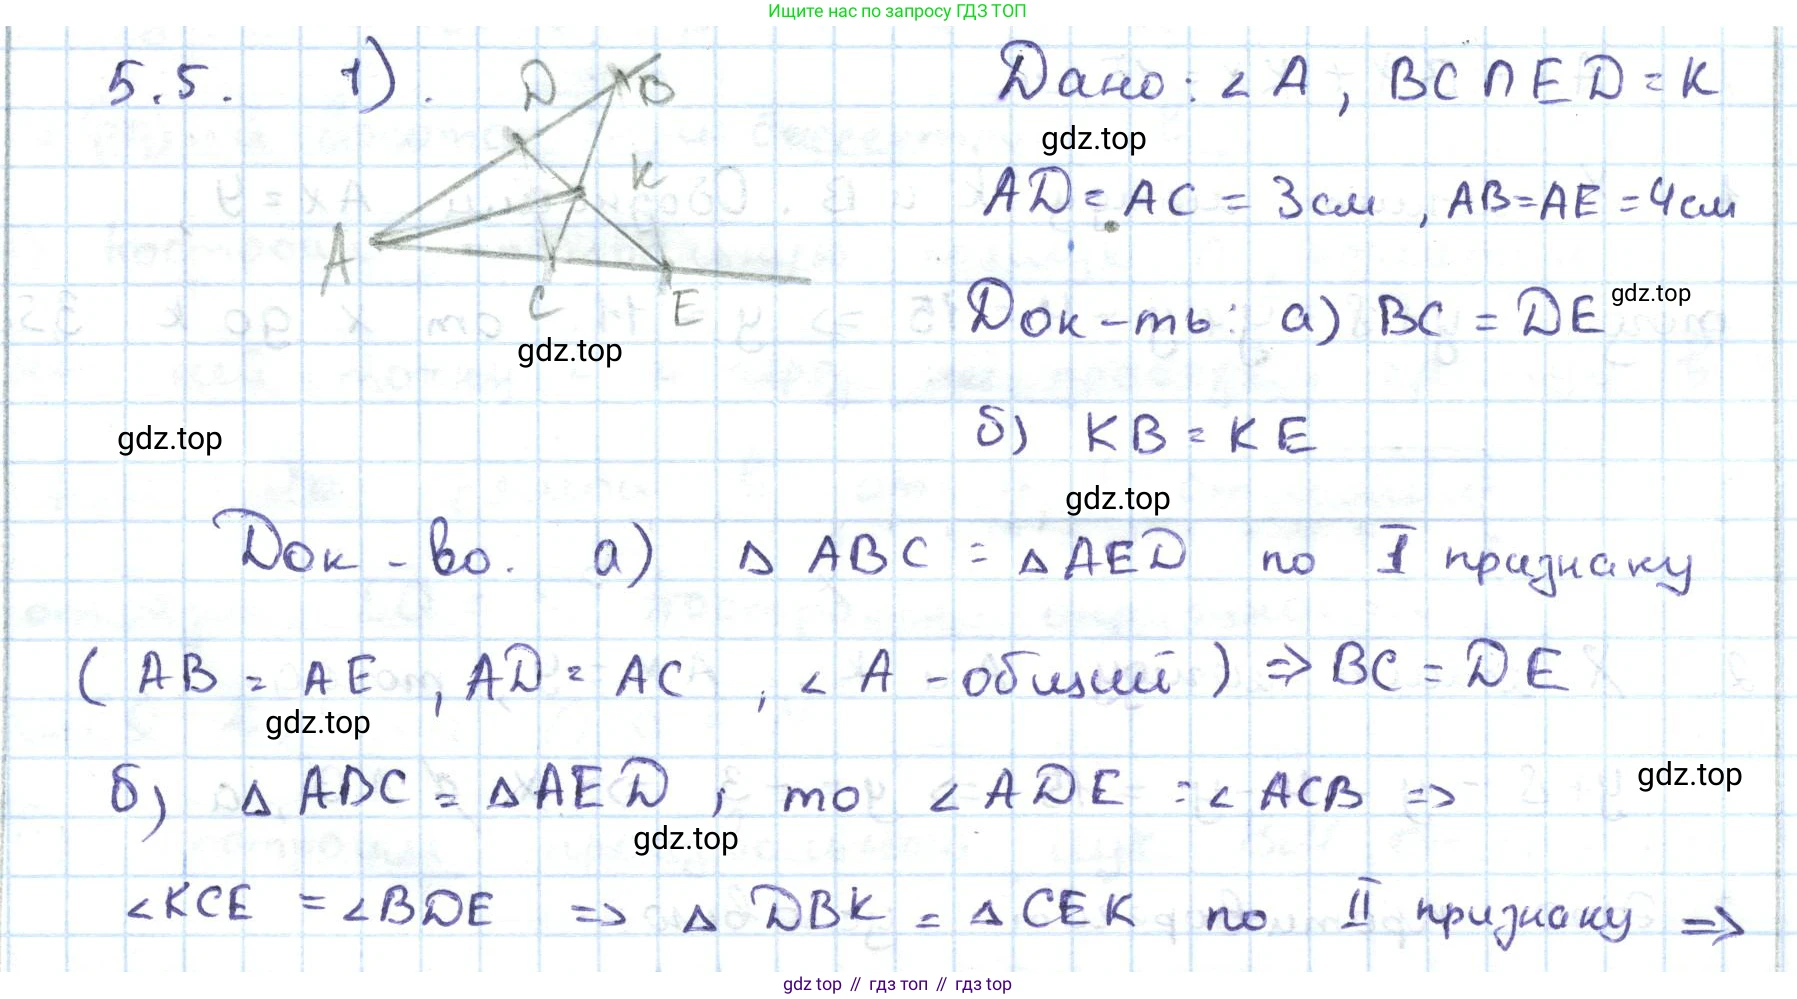 Ищите нас по запросу ГДЗ ТОП
5.5. 1).
D B
K
A
C E
Дано: ∠A, BC ∩ ED = K
gdz.top
AD = AC = 3 см, AB = AE = 4 см
Док-ть: а) BC = DE
gdz.top
gdz.top
gdz.top
б) KB = KE
gdz.top
Док-во. а) Δ ABC = Δ AED по I признаку
( AB = AE, AD = AC, ∠ A - общий ) ⇒ BC = DE
gdz.top
б) Δ ABC = Δ AED, то ∠ ADE = ∠ ACB ⇒
gdz.top
gdz.top
∠KCE = ∠BDE ⇒ Δ DBK = Δ CEK по II признаку ⇒
gdz top // гдз топ // gdz top